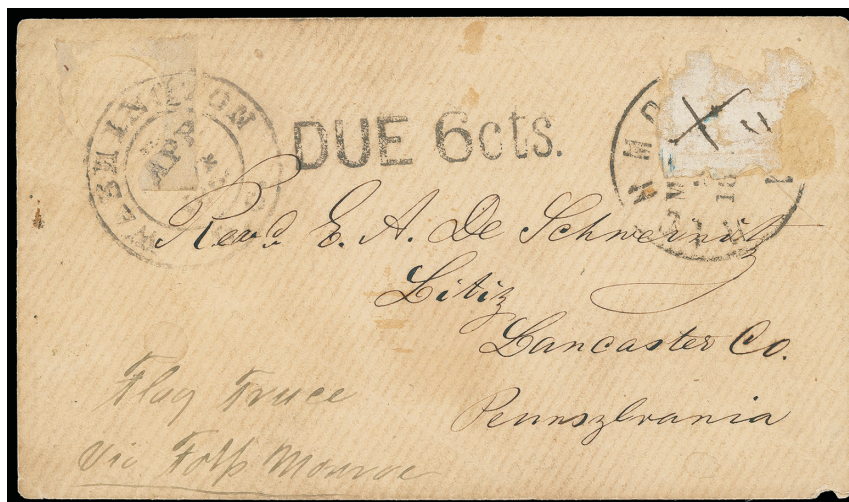 WASHINGTON
APR
DUE 6cts.
Revd. E. A. De Schweinitz
Litiz
Lancaster Co.
Pennsylvania
Flag Truce
via Fort Monroe